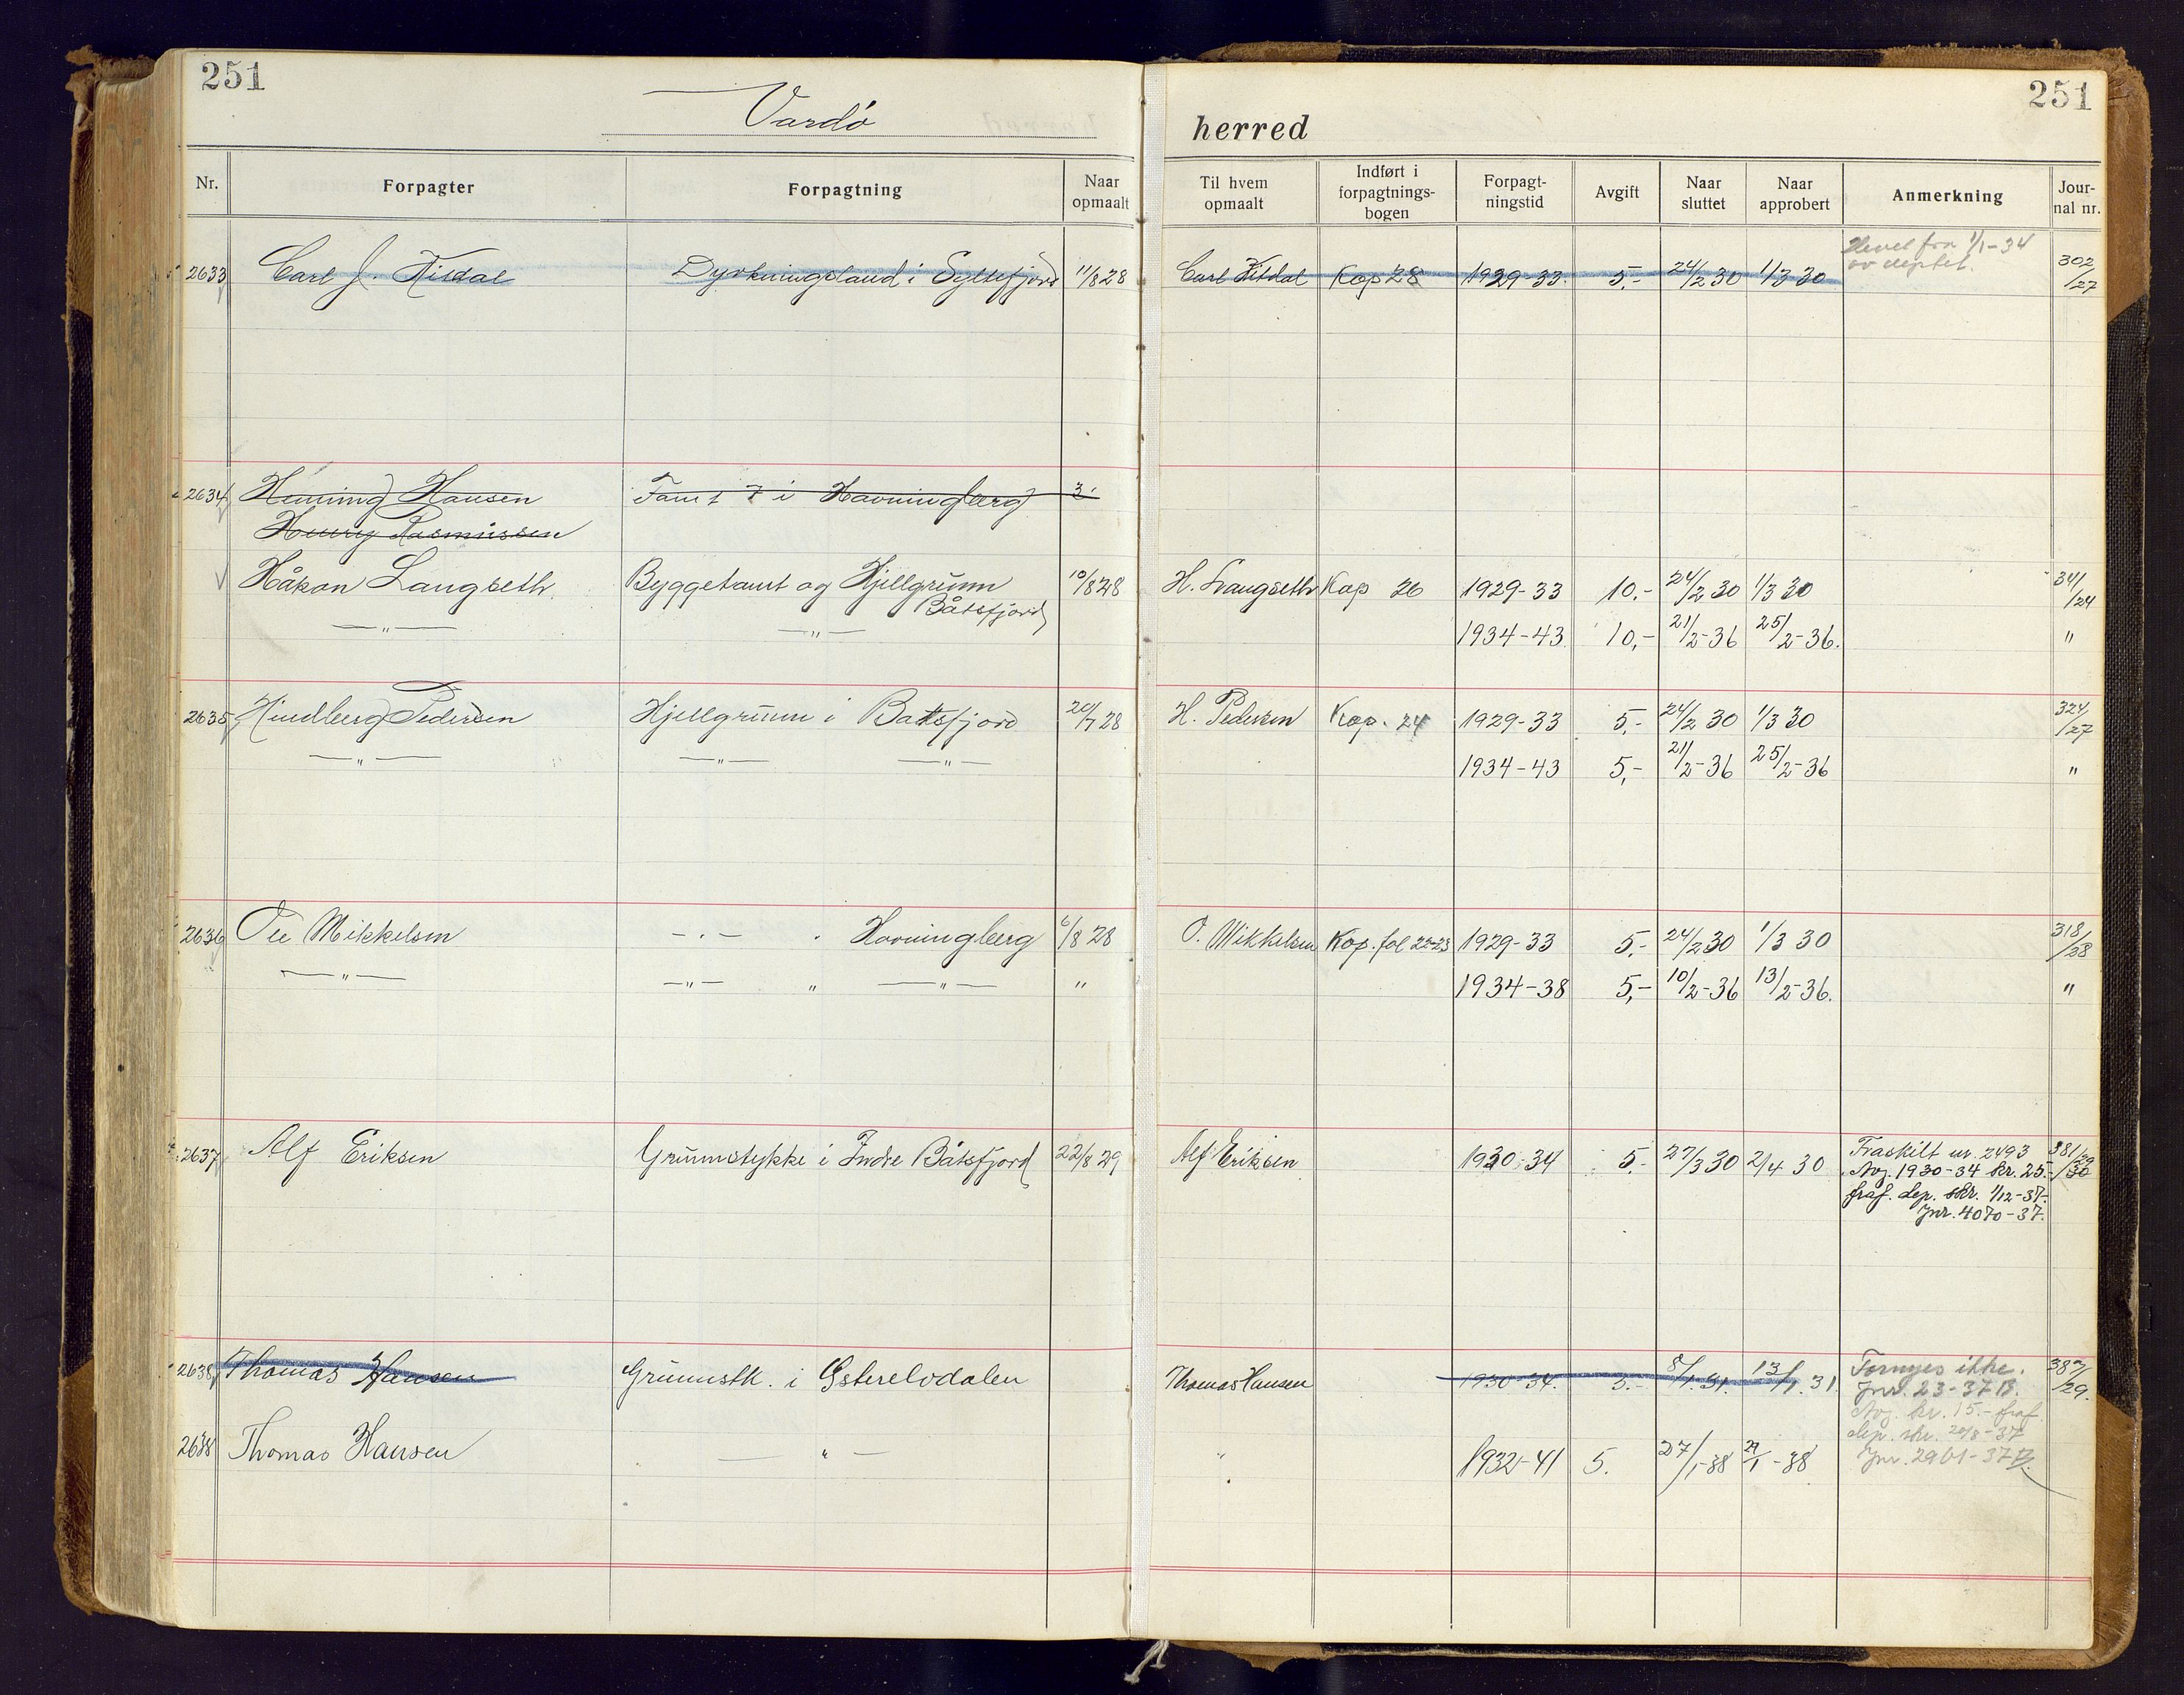 251
251
Vardö
herred
Nr. Forpagter Forpagtning Naar opmaalt Til hvem opmaalt Indført i forpagtnings-bogen Forpagt-ningstid Avgift Naar sluttet Naar approbert Anmerkning Jour-nal nr.
Hevet fra 1/1-34
av deptet.
2633 Carl J. Kisdal Dyrkningsland i Syltefjord 11/8 28 Carl Kisdal Kop 28 1929-33. 5,- 24/2 30 1/3 30 302/27
2634 Henning Hansen Tomt 7 i Havningberg 3.
Henry Rasmussen
Håkon Langseth Byggetomt og Hjellgrunn 10/8 28 H. Langseth Kop 26 1929-33 10.- 24/2 30 1/3 30 341/24
Båtsfjord
—„— —„— 1934-43 10,- 21/2-36 25/2-36. "
2635 Hindberg Pedersen Hjellgrunn i Båtsfjord 20/7 28 H. Pedersen Kop. 24 1929-33 5,- 24/2 30 1/3 30 324/27
—„— —„— —„— 1934-43 5,- 21/2-36 25/2-36 "
2636 Ole Mikkelsen —.— . Havningberg 6/8 28 O. Mikkelsen Kop. fol 22-23 1929-33 5,- 24/2 30 1/3 30 318/28
—„— —„— „ —„— „ 1934-38 5,- 10/2-36 13/2-36. "
2637 Alf Eriksen Grunnstykke i Indre Båtsfjord 22/8 29 Alf Eriksen 1930-34 5.- 27/3 30 2/4 30 Fraskilt nr. 2493 381/29
Avg. 1930-34 kr. 25.- /30
fraf. dep. skr. 1/12-37.
Jnr. 4070-37.
2638 Thomas Hansen Grunnstk. i Østerelvdalen Thomas Hansen 1930-34. 5.- 8/1.31. 13/1.31. Fornyes ikke. 387/29.
Jnr. 23-37 B.
Avg. kr. 15.- fraf.
dep. skr. 20/8-37
2638 Thomas Hansen —„— „ 1932-41 5. 27/1-38 29/1-38 Jnr. 2961-37 B.